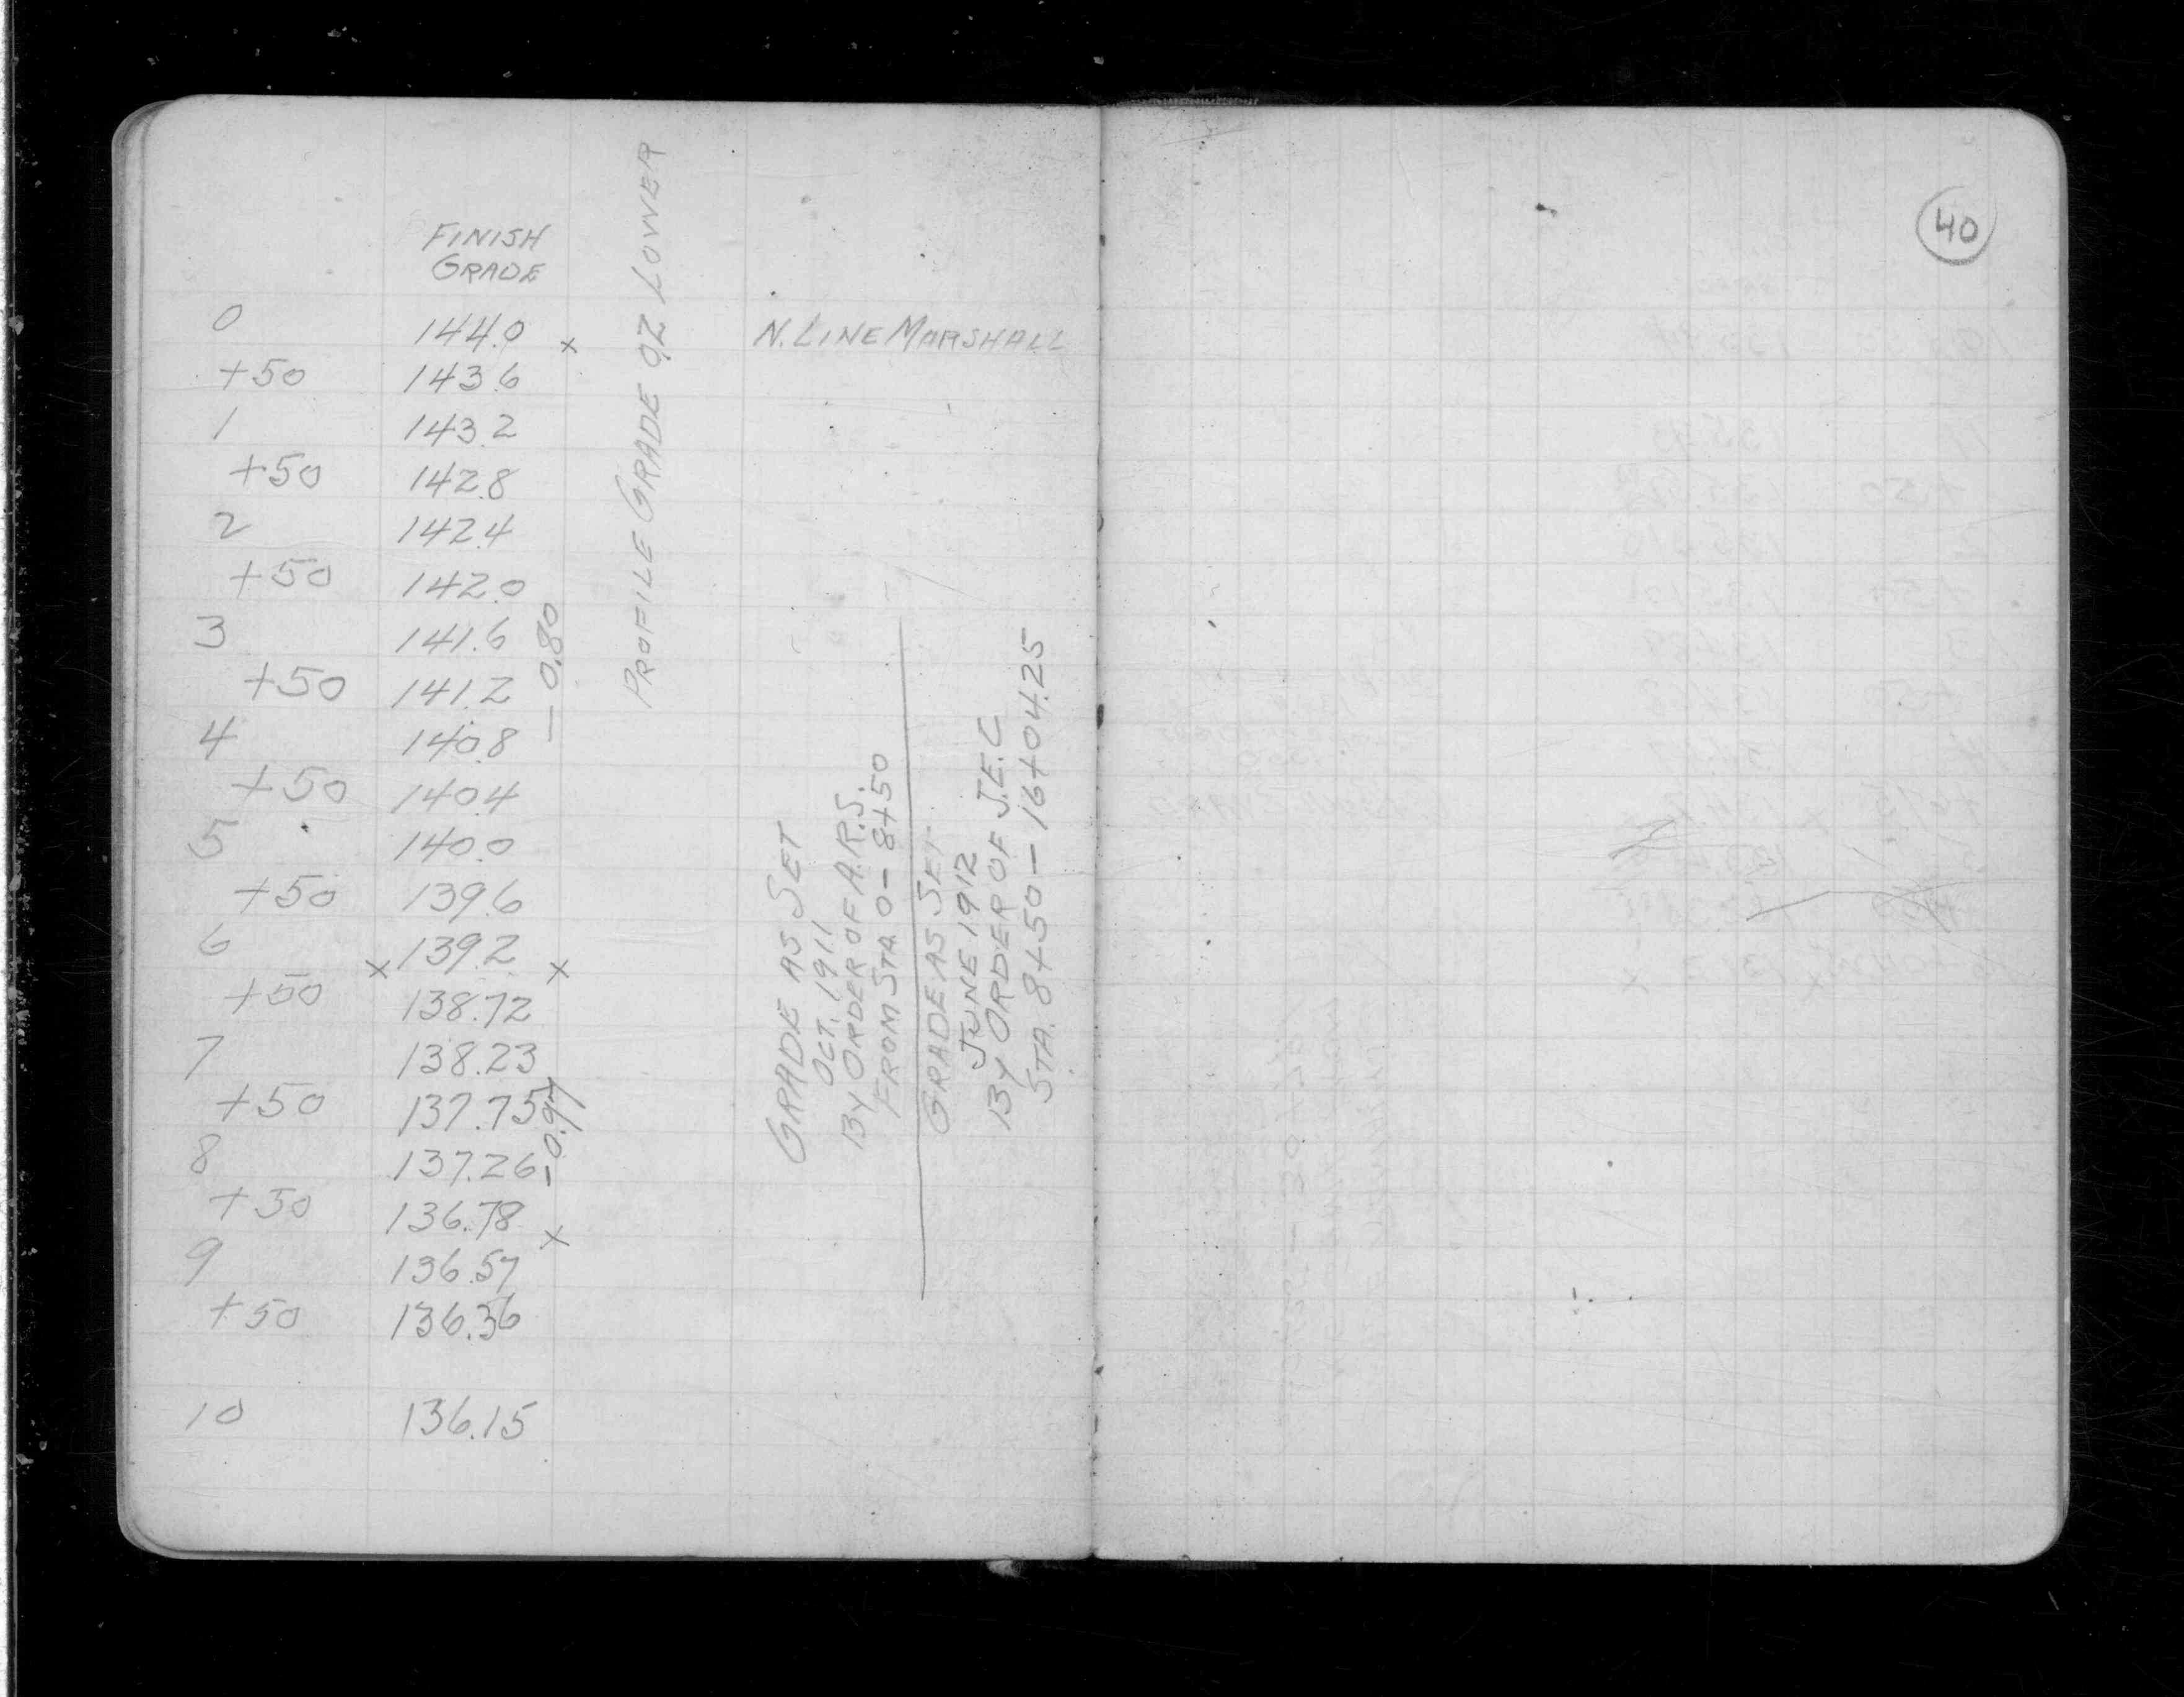 FINISH
GRADE
0 144.0 x N. LINE MARSHALL
+50 143.6
1 143.2
+50 142.8
2 142.4
+50 142.0
3 141.6
+50 141.2
4 140.8
+50 140.4
5 140.0
+50 139.6
6 x 139.2 x
+50 138.72
7 138.23
+50 137.75
8 137.26
+50 136.78 x
9 136.57
+50 136.36
10 136.15
- 0.80
- 0.97
PROFILE GRADE 0.2 LOWER
GRADE AS SET
OCT. 1911
BY ORDER OF A.R.S.
FROM STA 0 - 8+50
GRADE AS SET
JUNE 1912
BY ORDER OF J.E.C
STA. 8+50 - 16+04.25
40